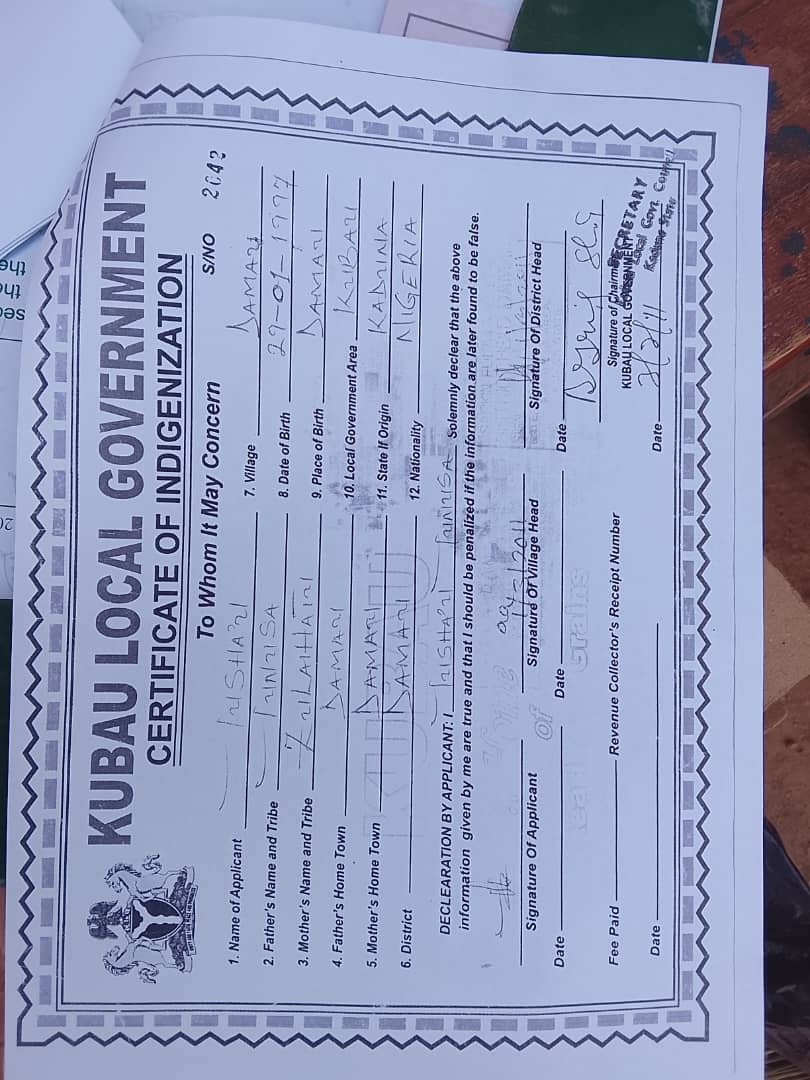 KUBAU LOCAL GOVERNMENT
CERTIFICATE OF INDIGENIZATION
To Whom It May Concern
S/NO
1. Name of Applicant
7. Village DAMARI
2. Father's Name and Tribe
8. Date of Birth 29-01-1997
3. Mother's Name and Tribe
9. Place of Birth DAMARI
4. Father's Home Town DAMARI
10. Local Government Area KUBAU
5. Mother's Home Town DAMARI
11. State If Origin KADUNA
6. District DAMARI
12. Nationality NIGERIA
DECLEARATION BY APPLICANT: I Solemnly declear that the above
information given by me are true and that I should be penalized if the information are later found to be false.
Signature Of Applicant
Signature Of Village Head
Signature Of District Head
Date
Date
Date
Signature of Chairman
KUBAU LOCAL GOVERNMENT
SECRETARY
Local Govt. Council
Kaduna State
Fee Paid
Revenue Collector's Receipt Number
Date
Date